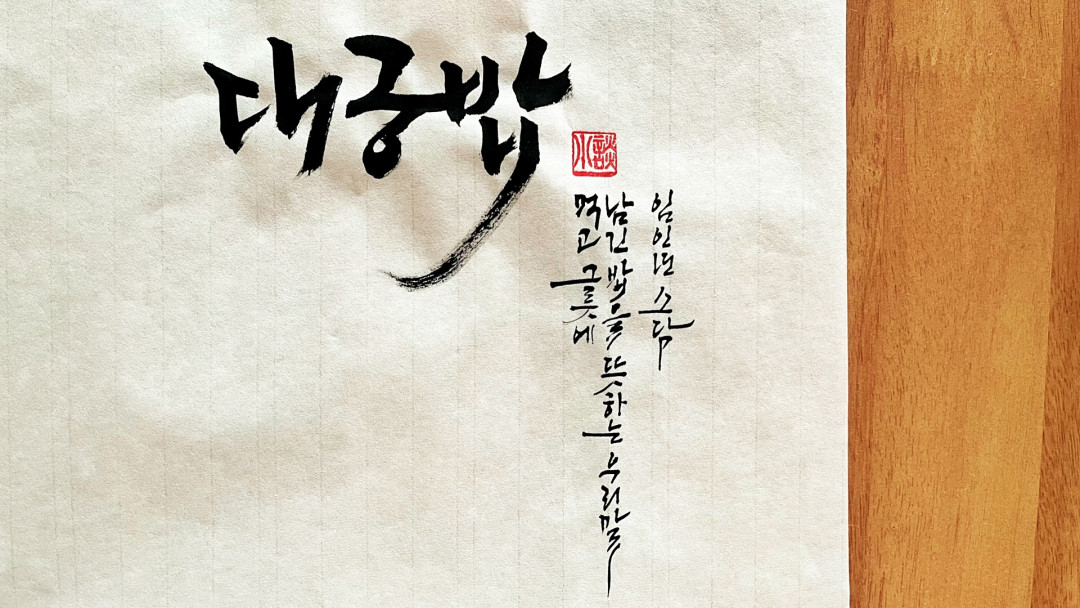 대궁밥
小談
먹고 그릇에
남긴 밥을 뜻하는 우리말
임인년 소담